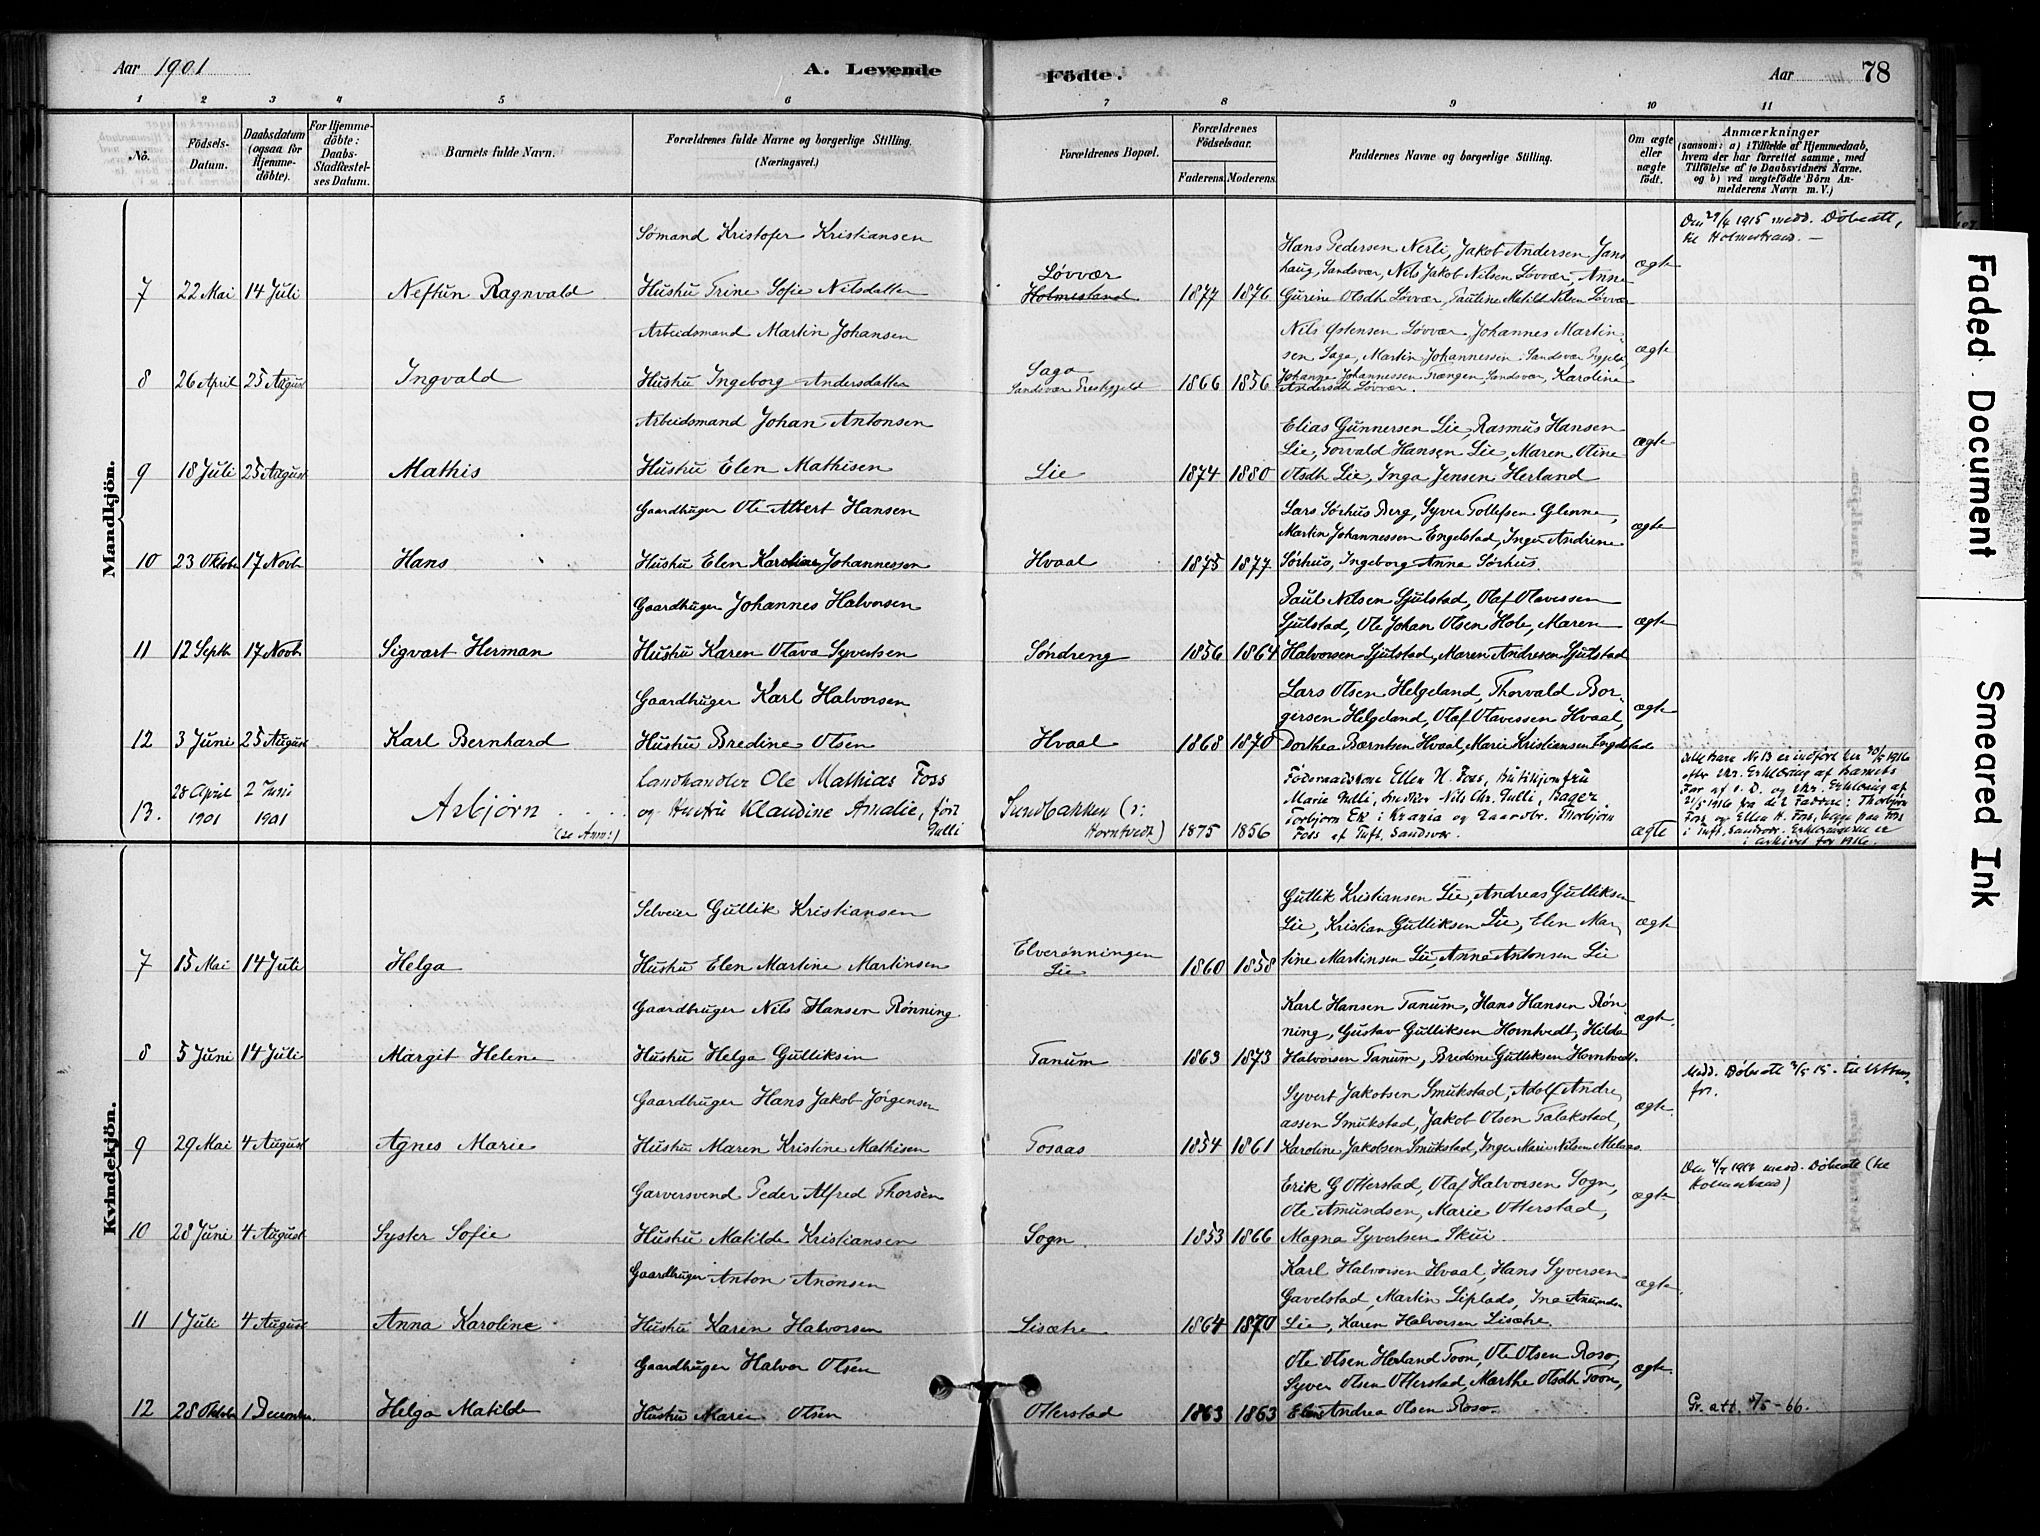 Aar 1901
A. Levende
Födte.
Aar 78
1 2 3 4 5 6 7 8 9 10 11
No.
Födsels-Datum.
Daabsdatum (ogsaa for Hjemme-döbte).
For Hjemme-döbte: Daabs-Stadfæstel-ses Datum.
Barnets fulde Navn.
Forældrenes fulde Navne og borgerlige Stilling. (Næringsvei.)
Forældrenes Bopæl.
Forældrenes Födselsaar.
Faderens. Moderens.
Faddernes Navne og borgerlige Stilling.
Om ægte eller uægte födt.
Anmærkninger
(saasom: a) i Tilfælde af Hjemmedaab,
hvem der har forrettet samme, med
Tilföielse af to Daabsvidners Navne.
og b) ved uægtefödte Börn An-
melderens Navn m. V.)
Mandkjön.
Sømand Kristofer Kristiansen
Hans Pedersen Nerli, Jakob Andersen Jans
haug, Sandsvær, Nils Jakob Nilsen Løvvær, Anne
ægte
Den 29/4 1915 medd. Döbeatt,
til Holmestrand. —
Løvvær
7 22 Mai 14 Juli Neftun Ragnvald Hustru Trine Sofie Nilsdatter Holmestrand 1877 1876 Gurine Olsdtr Løvvær, Pauline Matild Nilsen Løvvær
Arbeidsmand Martin Johansen
Nils Østensen Løvvær, Johannes Martin-
sen Saga, Martin Johannessen Sandsvær
ægte
8 26 April 25 August Ingvald Hustru Ingeborg Andersdatter Saga Sandsvær Prestegjeld 1866 1856 Johanne Johannessen Trængen, Sandsvær, Karoline
Andersdtr Løvvær.
Arbeidsmand Johan Antonsen
Elias Gunnersen Lie, Rasmus Hansen
Lie, Torvald Hansen Lie, Maren Oline
ægte
9 18 Juli 25 August Mathis Hustru Elen Mathisen Lie 1874 1880 Olsdtr Lie, Inga Jensen Herland
Gaardbruger Ole Albert Hansen
Lars Sørhus Berg, Syver Tollefsen Glenne,
Martin Johannessen Engelstad, Inger Andrine
ægte
10 23 Oktobr 17 Novbr Hans Hustru Elen Karoline Johannessen Hvaal 1875 1877 Sørhus, Ingeborg Anna Sørhus.
Gaardbruger Johannes Halvorsen
Paul Nilsen Sjulstad, Olaf Olavessen
Sjulstad, Ole Johan Olsen Hole, Maren
ægte
11 12 Septbr 17 Novbr Sigvart Herman Hustru Karen Olava Syvertsen Søndreng 1856 1864 Halvorsen Sjulstad, Maren Andresen Sjulstad
Gaardbruger Karl Halvorsen
Lars Olsen Helgeland, Thorvald Bor-
gersen Helgeland, Olaf Olavessen Hvaal,
ægte
12 3 Juni 25 August Karl Bernhard Hustru Bredine Olsen Hvaal 1868 1870 Dorthea Berntsen Hvaal, Marie Kristiansen Engelstad
13. 28 April 1901 2 Juni 1901 Asbjörn (se Anm:)
Landhandler Ole Mathias Foss
og Hustru Klaudine Amalie, født Tulli
Sundbakken (i: Horntvedt) 1875 1856
Födsraadskone Ellen H. Foss, Butikjomfru
Marie Tulli, Snedker Nils Chr. Tulli, Bager
Torbjörn Ek i Krania og Gaardbr. Thorbjörn
Foss af Tuft, Sandsvær.
ægte
Dette barn No 13 er indført her 1916
efter skr. Erklæring af barnets
Far af s. D. og skr. Erklæring af
21/5 1916 fra de 2 Faddere: Thorbjörn
Foss og Ellen H. Foss, begge fra Foss
i Tuft, Sandsvær. Erklæringerne er
i arkivet for 1916.
Kvindekjön.
Selveier Gullik Kristiansen
Gullik Kristiansen Lie, Andreas Gulliksen
Lie, Kristian Gulliksen Lie, Elen Mar
ægte
7 15 Mai 14 Juli Helga Hustru Elen Martine Martinsen Elverønningen Lie 1860 1858 tine Martinsen Lie, Anna Antonsen Lie
Gaardbruger Nils Hansen Rønning.
Karl Hansen Tanum, Hans Hansen Røn
ning, Gustav Gulliksen Horntvedt, Hilda
ægte.
8 5 Juni 14 Juli Margit Helene Hustru Helga Gulliksen Tanum 1863 1873 Halvorsen Tanum, Bredine Gulliksen Horntvedt.
Gaardbruger Hans Jakob Jörgensen
Syvert Jakobsen Smukstad, Adolf Andre
assen Smukstad, Jakob Olsen Falakstad,
ægte.
Medd. Döbeatt 15. til
9 29 Mai 4 August Agnes Marie Hustru Maren Kristine Mathisen Fosaas 1854 1861 Karoline Jakobsen Smukstad, Inger Marie Nilsen Melaas.
Garversvend Peder Alfred Thorsen
Erik G Otterstad, Olaf Halvorsen Sogn,
Ole Amundsen, Marie Otterstad,
ægte.
medd. Döbeatt (til
Holmestrand)
10 28 Juni 4 August Syster Sofie Hustru Matilde Kristiansen Sogn. 1853 1866 Magna Syvertsen Skui.
Gaardbruger Anton Anonsen
Karl Halvorsen Hvaal, Hans Syversen
Gavelstad, Martin Liplads, Ine Amunds-
ægte.
11 1 Juli 4 August Anna Karoline Hustru Karen Halvorsen Lisætre 1864 1870 Lie, Karen Halvorsen Lisætre.
Gaardbruger Halvor Olsen
Ole Olsen Herland Toon, Ole Olsen Roso,
Syver Olsen Otterstad, Marthe Olsdtr Toon,
ægte.
12 28 Oktobr 1 December Helga Matilde Hustru Marie Olsen Otterstad 1863 1863 Elen Andrea Olsen Roso.
Gr. att. 5/5-66.
Faded Document
Smeared Ink